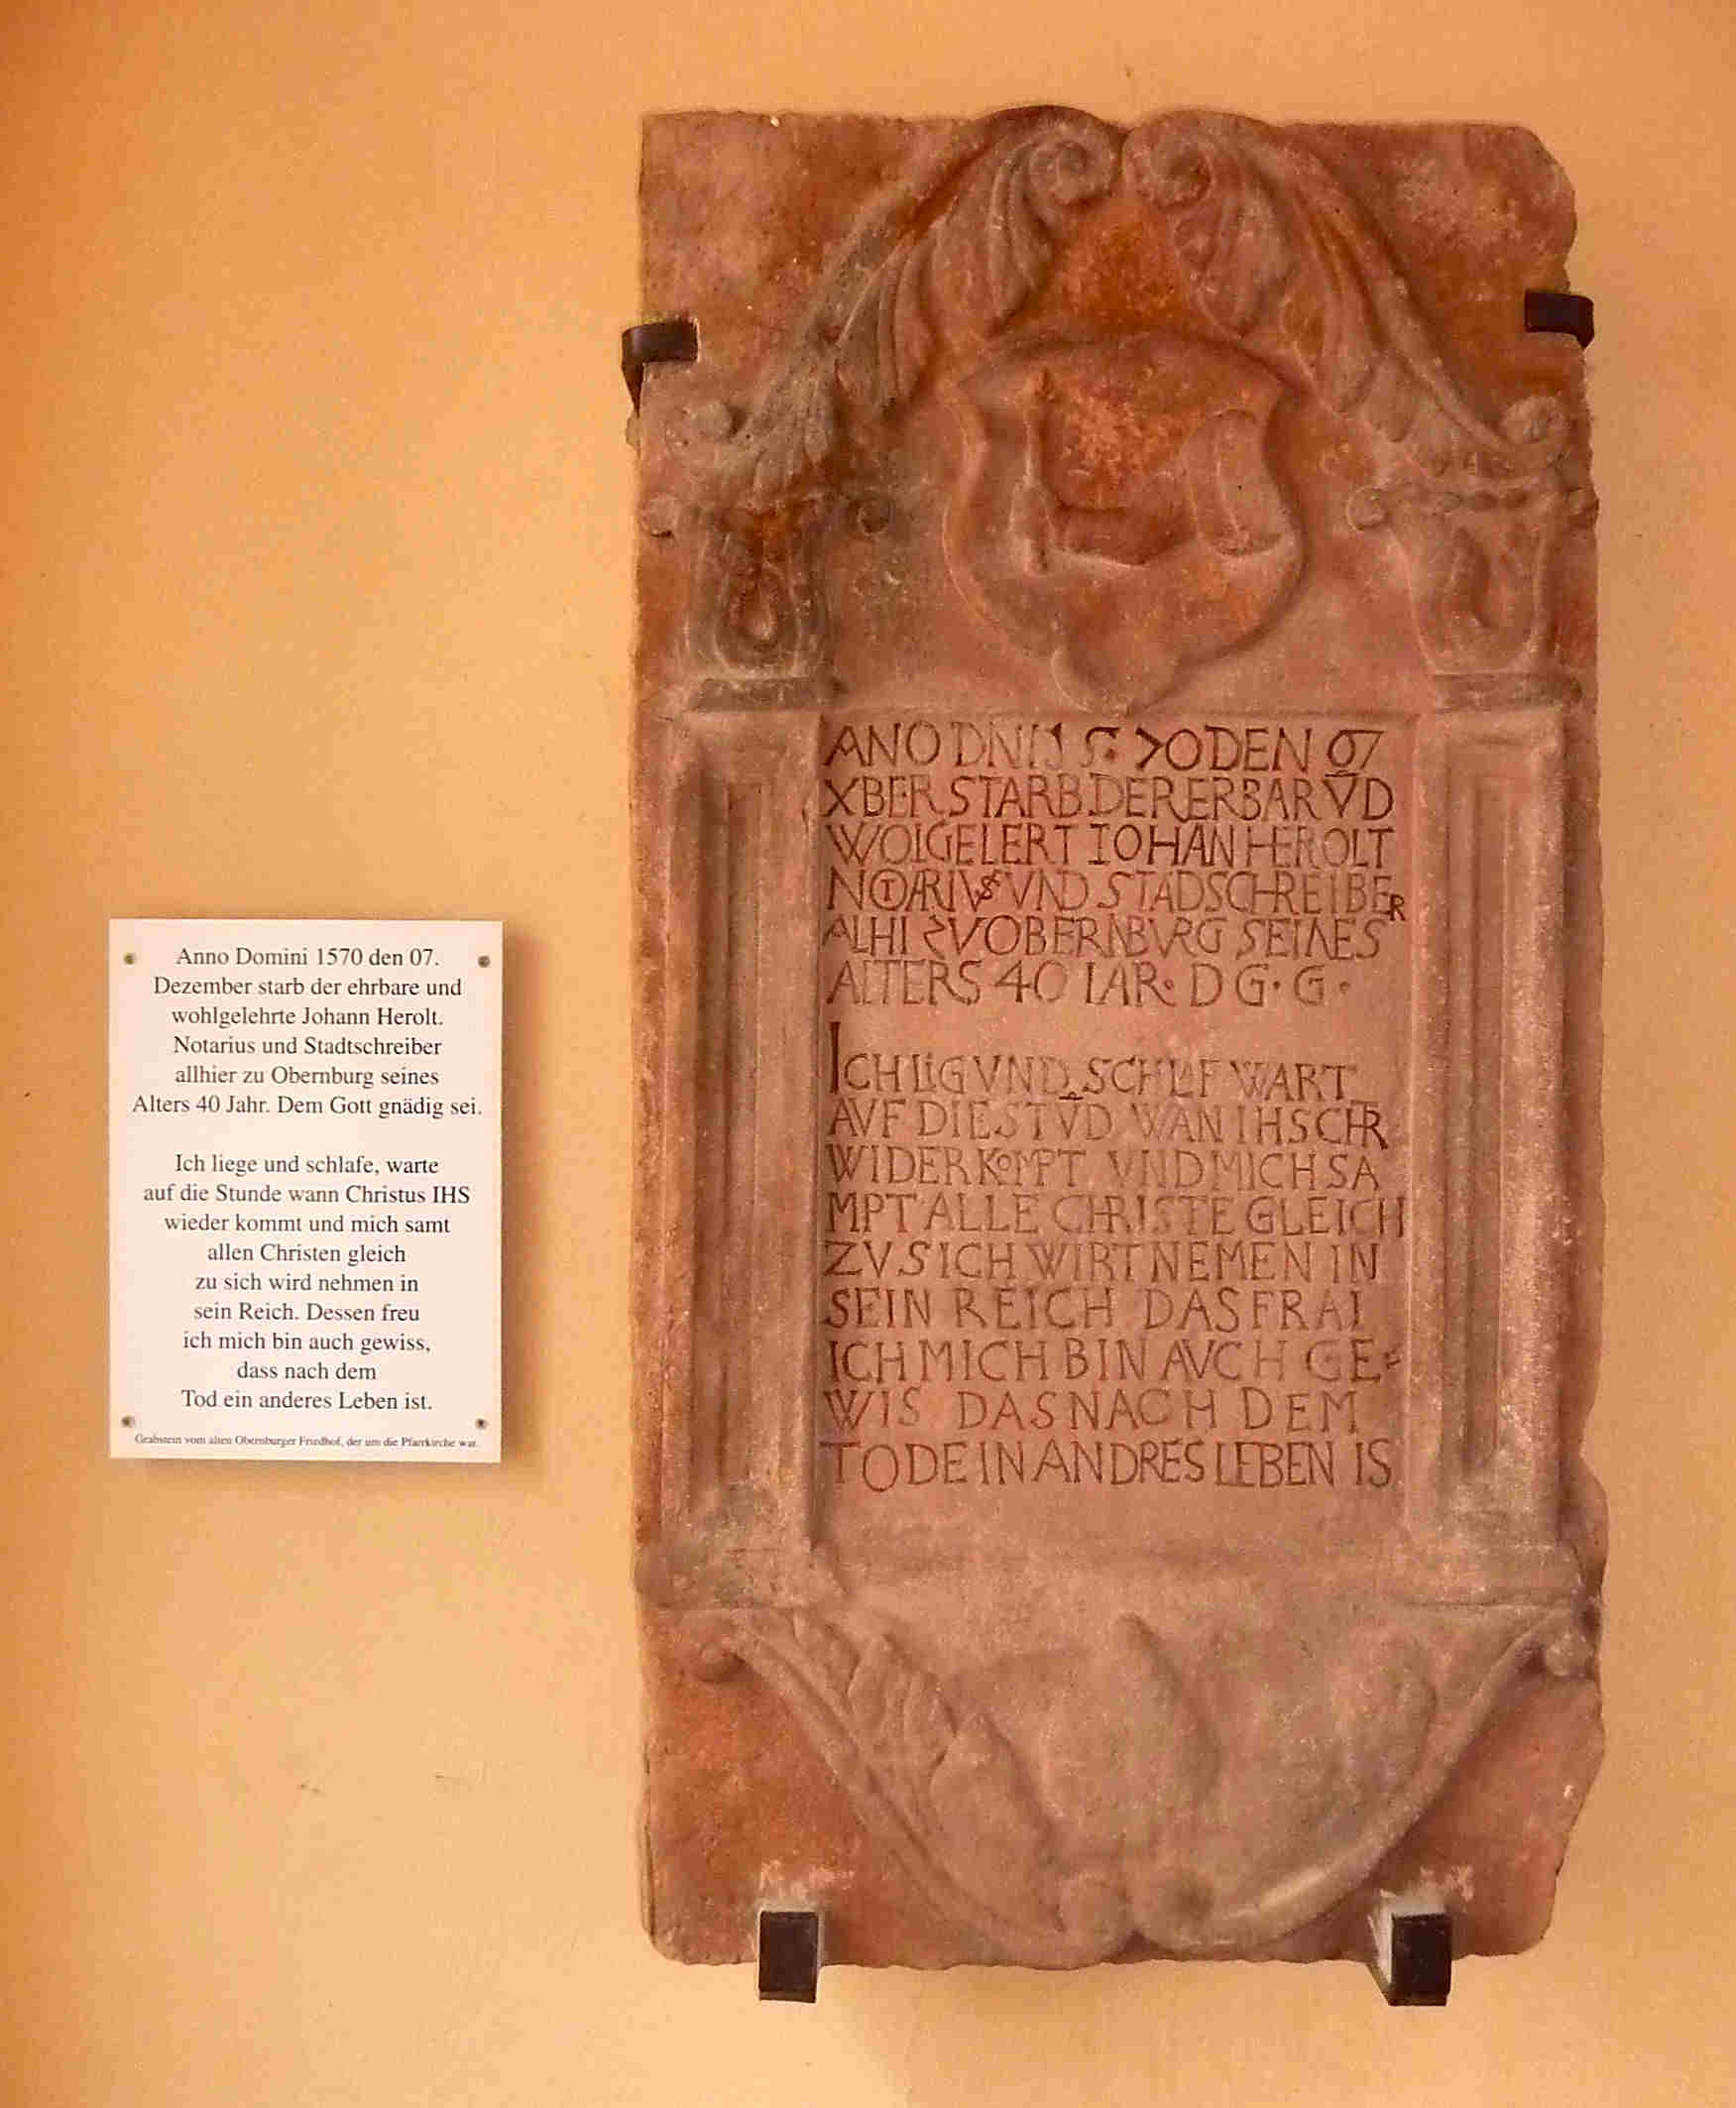 Anno Domini 1570 den 07.
Dezember starb der ehrbare und
wohlgelehrte Johann Herolt.
Notarius und Stadtschreiber
allhier zu Obernburg seines
Alters 40 Jahr. Dem Gott gnädig sei.
Ich liege und schlafe, warte
auf die Stunde wann Christus IHS
wieder kommt und mich samt
allen Christen gleich
zu sich wird nehmen in
sein Reich. Dessen freu
ich mich bin auch gewiss,
dass nach dem
Tod ein anderes Leben ist.
Grabstein vom alten Obernburger Friedhof, der um die Pfarrkirche war.
ANO DNI 15.70 DEN 07
XBER STARB DER ERBAR VD
WOLGELERT IOHAN HEROLT
NOTARIVS VND STADSCHREIBER
ALHI ZV OBERNBVRG SEINES
ALTERS 40 IAR · D G · G ·
ICH LIG VND SCHLAF WART
AVF DIE STVD WAN IHS CHR
WIDER KOMPT VND MICH SA
MPT ALLE CHRISTE GLEICH
ZV SICH WIRT NEMEN IN
SEIN REICH DAS FRAI
ICH MICH BIN AVCH GE=
WIS DAS NACH DEM
TOD EIN ANDRES LEBEN IS